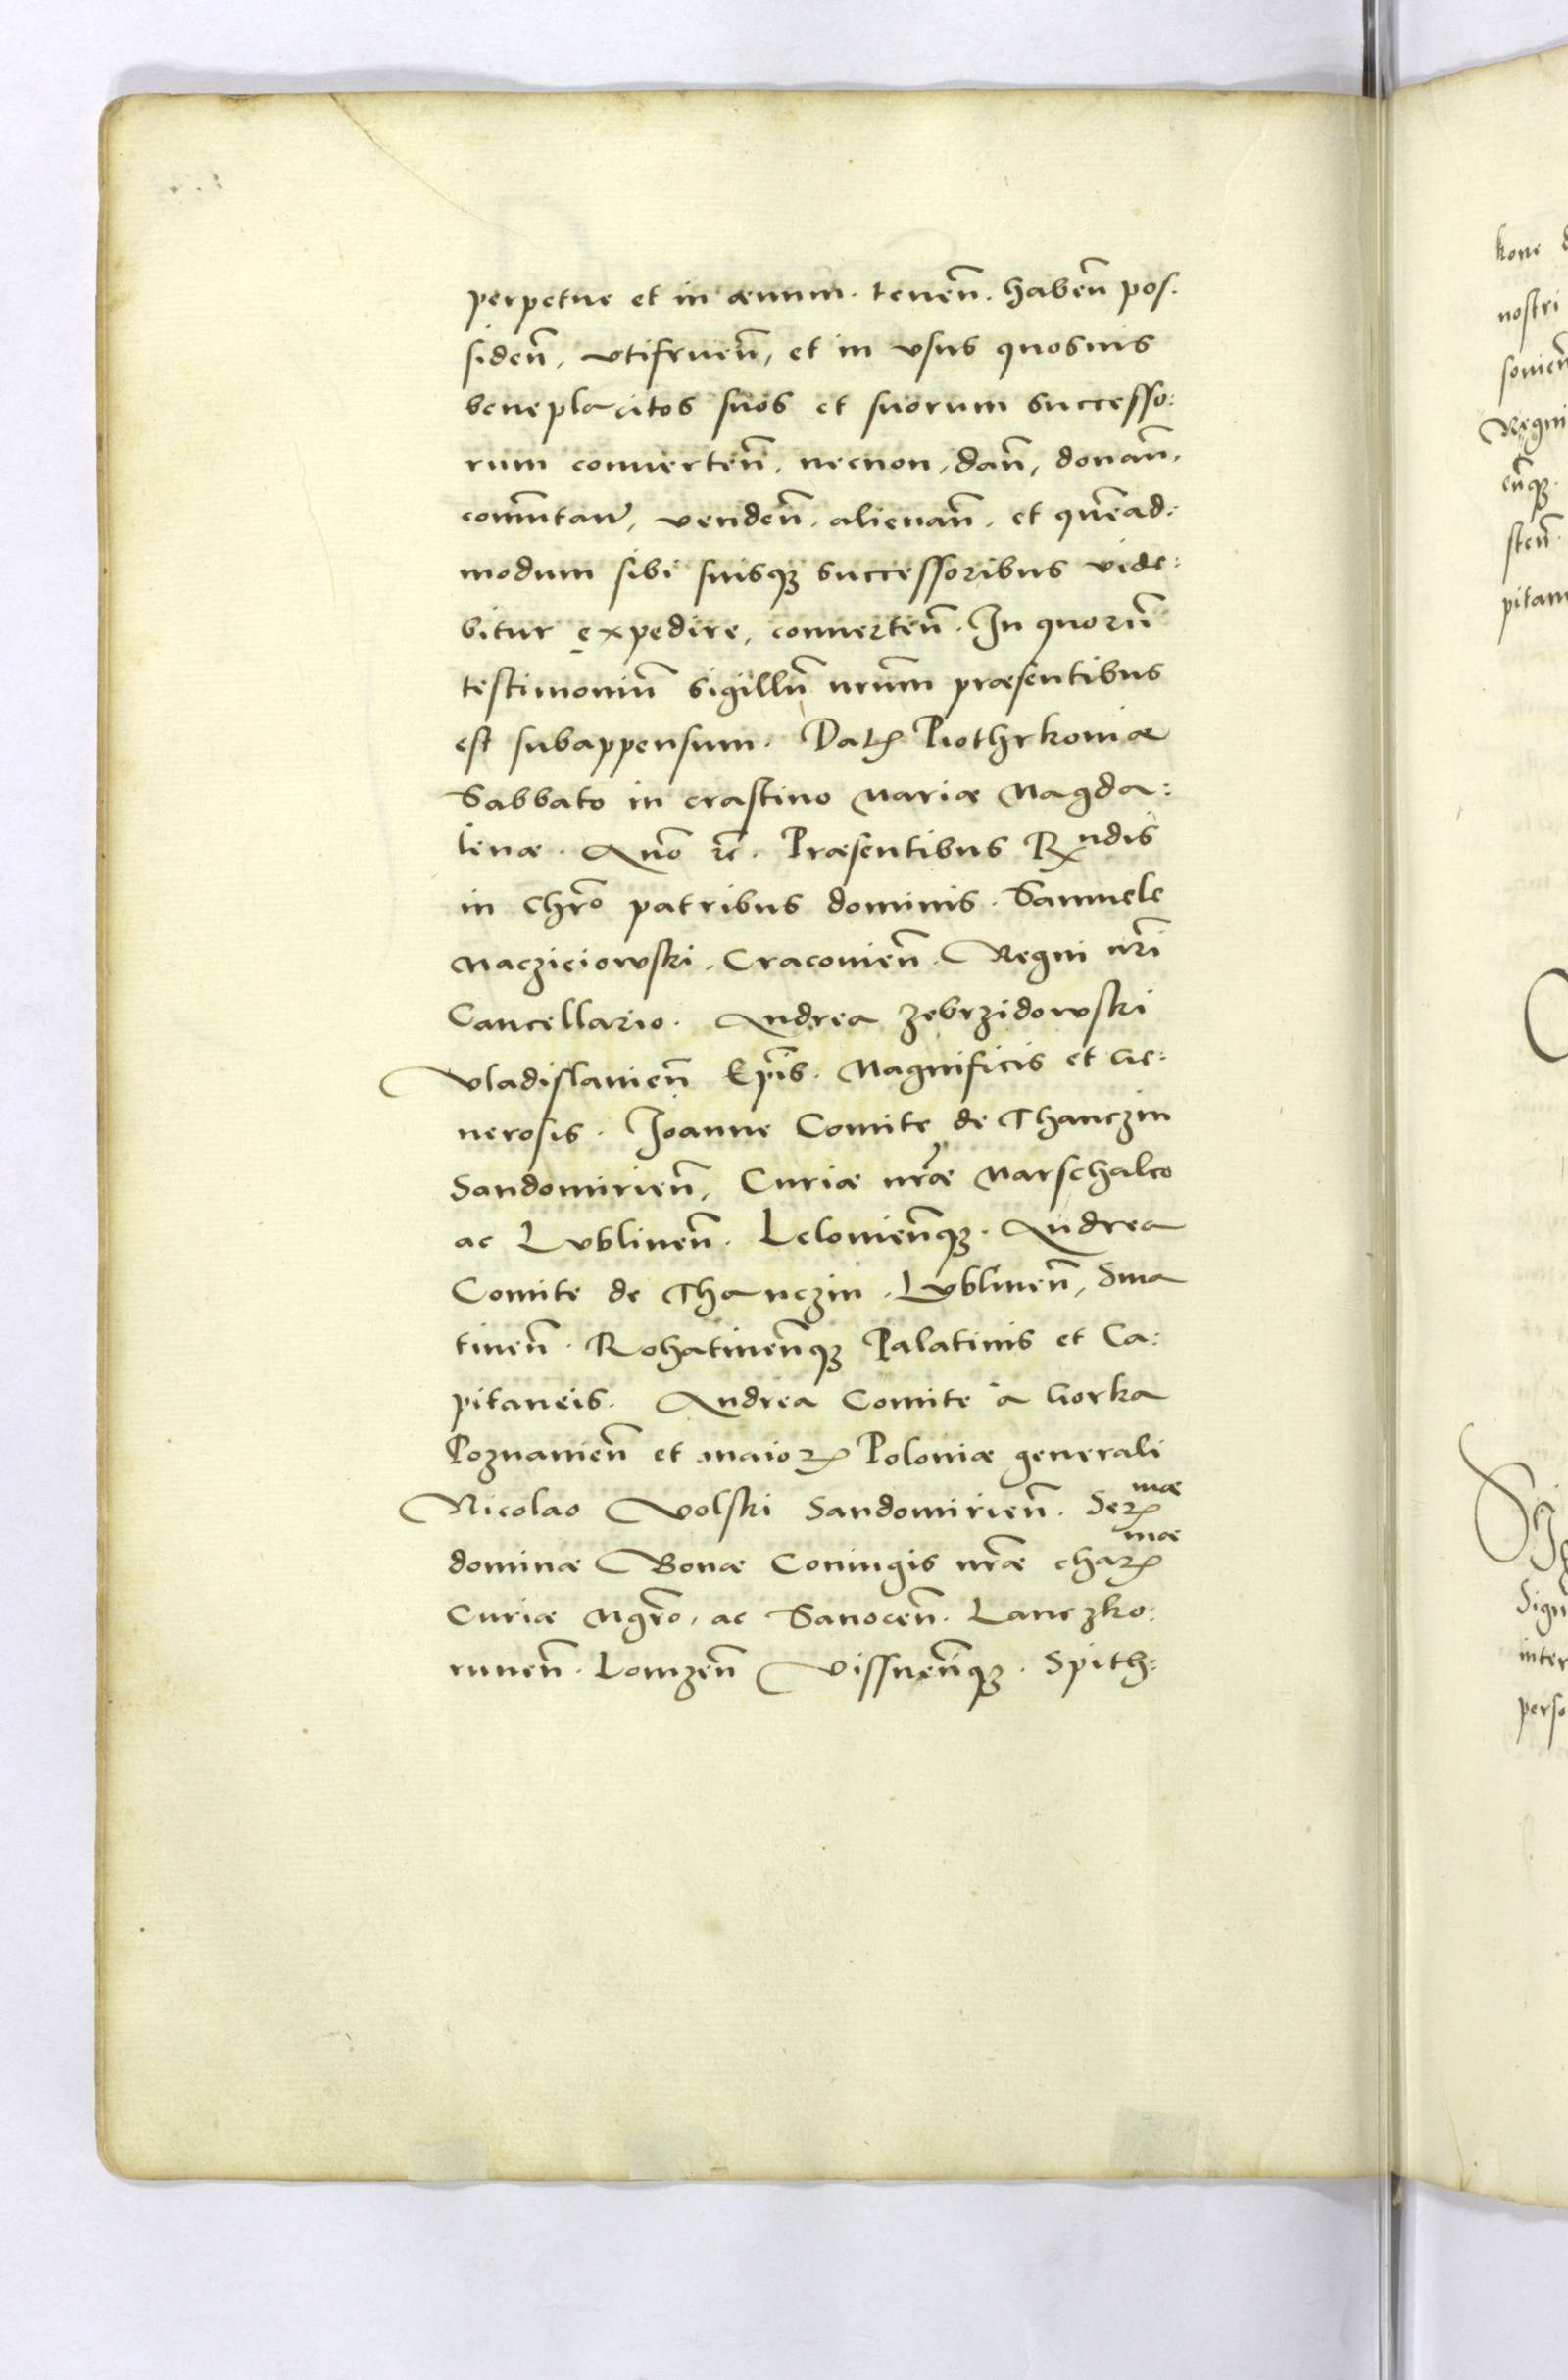 perpetue et in æuum. tenen̄. haben̄ pos:
siden̄, vtifruen̄, et in vsus quosuis
beneplacitos suos et suorum successo:
rum conuerten̄. necnon, dan̄, donan̄,
com̄utan̄, venden̄. alienan̄. et quēad:
modum sibi suisqꝫ successoribus vide:
bitur expedire, conuerten̄. In quorū
testimoniū sigillū nrūm præsentibus
est subappensum. Datꝫ Piothrkouiæ
Sabbato in crastino Mariæ Magda:
lenæ. An̄o ꝛc̄. Præsentibus Rndis
in Chrō patribus dominis. Samuele
Macziciowski. Cracouien̄. Regni nrī
Cancellario. Andrea Zebrzidowski
Vladislauien̄ Ep̄is. Magnificis et Ge:
nerosis. Joanne Comite de Thanczin
Sandomirien̄, Curiæ nrǣ Marschalco
ac Lublinen̄. Lelouien̄qꝫ. Andrea
Comite de Thanczin. Lublinen̄, Snia
tinen̄. Rohatinen̄qꝫ Palatinis et Ca:
pitaneis. Andrea Comite a Gorka
Poznanien̄ et maioꝝ Poloniæ generali
Nicolao Volski Sandomirien̄. Serꝫmæ
dominæ Bonæ Coniugis nrǣ charꝫmæ
Curiæ Mgrō, ac Sanocen̄. Lanczko:
runen̄. Lomzen̄ Vissnen̄qꝫ. Spith:
kone
nostri
souien̄
Regni
en̄qꝫ.
sten̄.
pitan
Sig
Sign
inter
perso